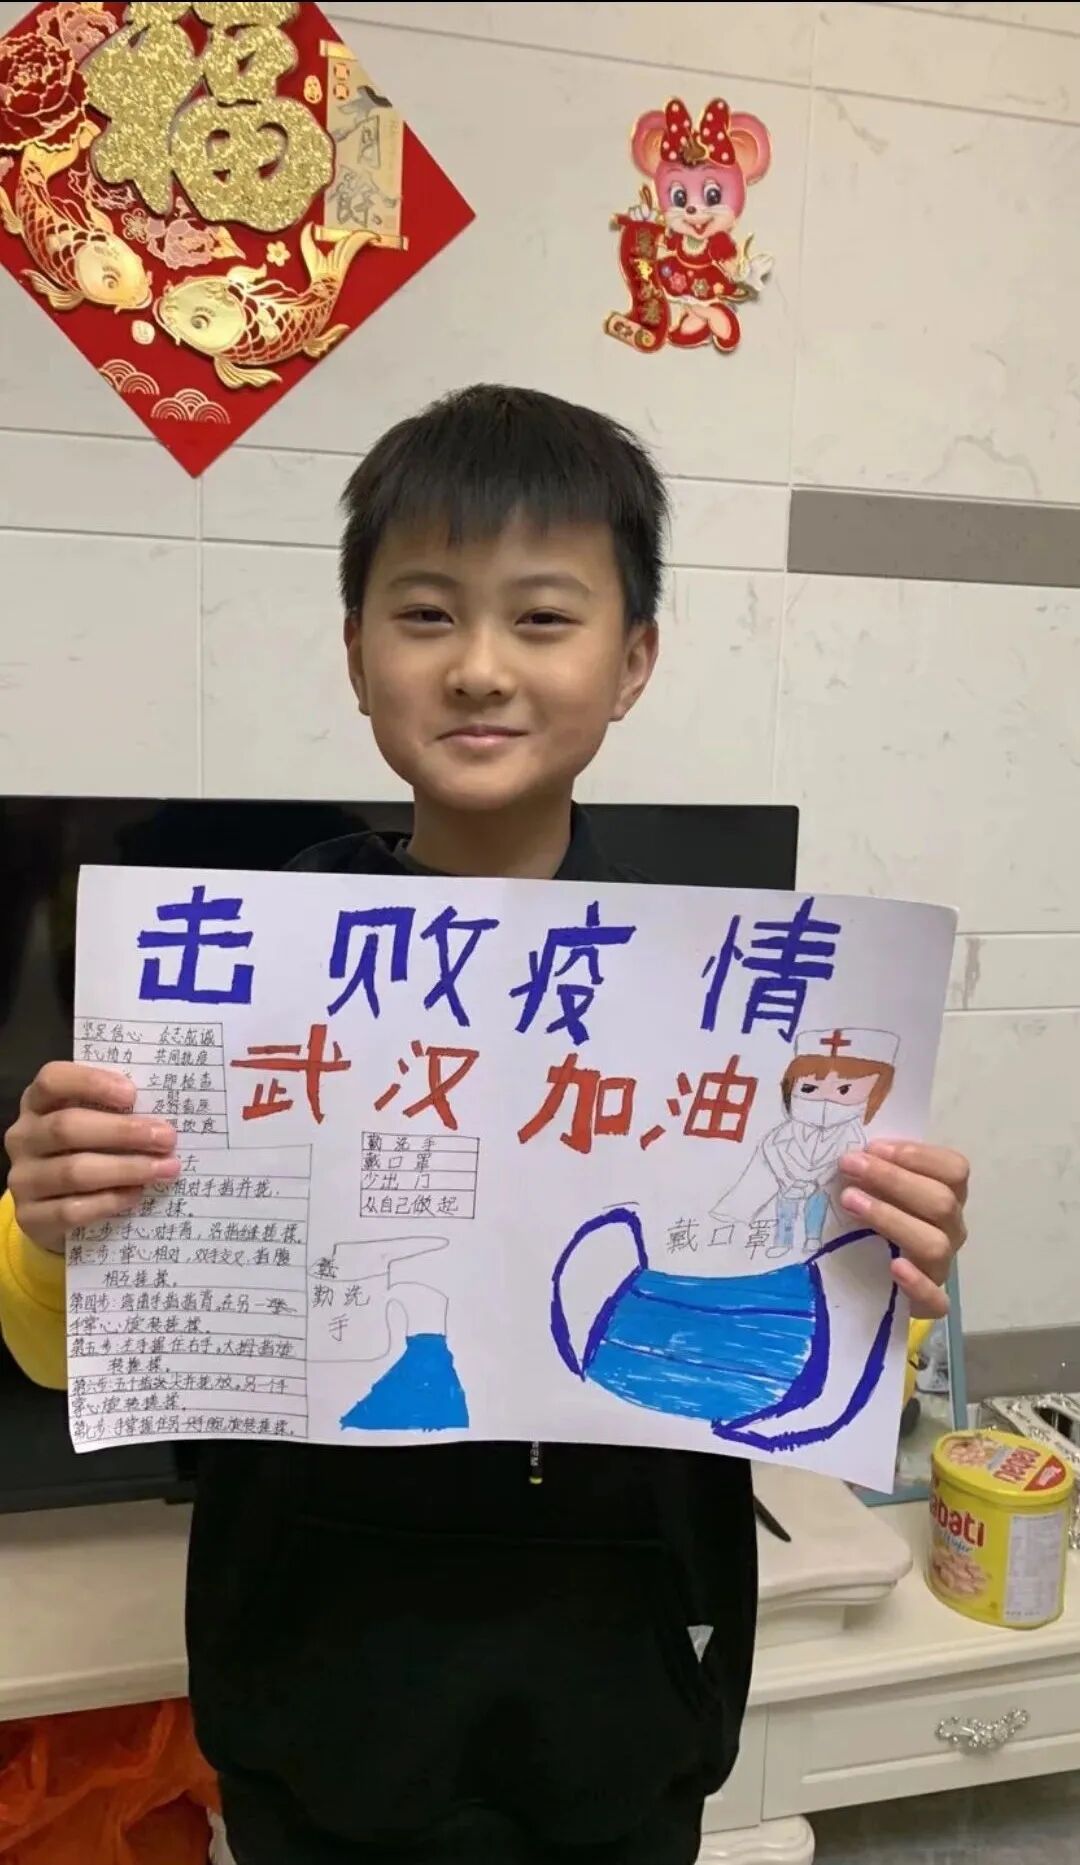 福
有餘
击败疫情
武汉加油
坚定信心 众志成诚
齐心协力 共同抗疫
立即检查
及时看医
勤洗手
戴口罩
少出门
从自己做起
心相对手指并拢，
搓揉。
第二步：手心对手背，沿指缝搓揉。
第三步：掌心相对，双手交叉，指腹
相互搓揉。
第四步：弯曲手指指背，在另一
手掌心旋转搓揉。
第五步：左手握住右手，大拇指旋
转搓揉。
第六步：五个指尖并拢放，另一个手
掌心旋转搓揉。
第七步：手掌握住另一手腕旋转搓揉。
勤洗
手
戴口罩
nabati
abati